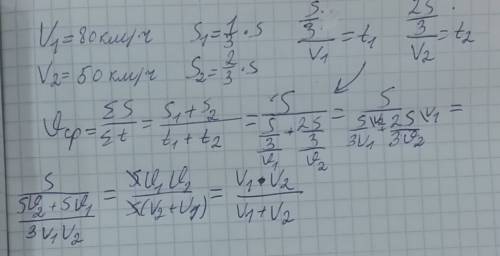 V₁=80км/ч S₁=1/3·S (S/3)/V₁=t₁ (2S/3)/V₂=t₂
V₂=50км/ч S₂=2/3·S
ϑср=ΣS/Σt=(S₁+S₂)/(t₁+t₂)=S/((S/3)/ϑ₁+(2S/3)/ϑ₂)=S/(SV₂/3V₁+2SV₁/3ϑ₂)=
S/((Sϑ₂+Sϑ₁)/3V₁V₂)=Sϑ₁ϑ₂/S(V₂+V₁)=V₁·V₂/(V₁+V₂)